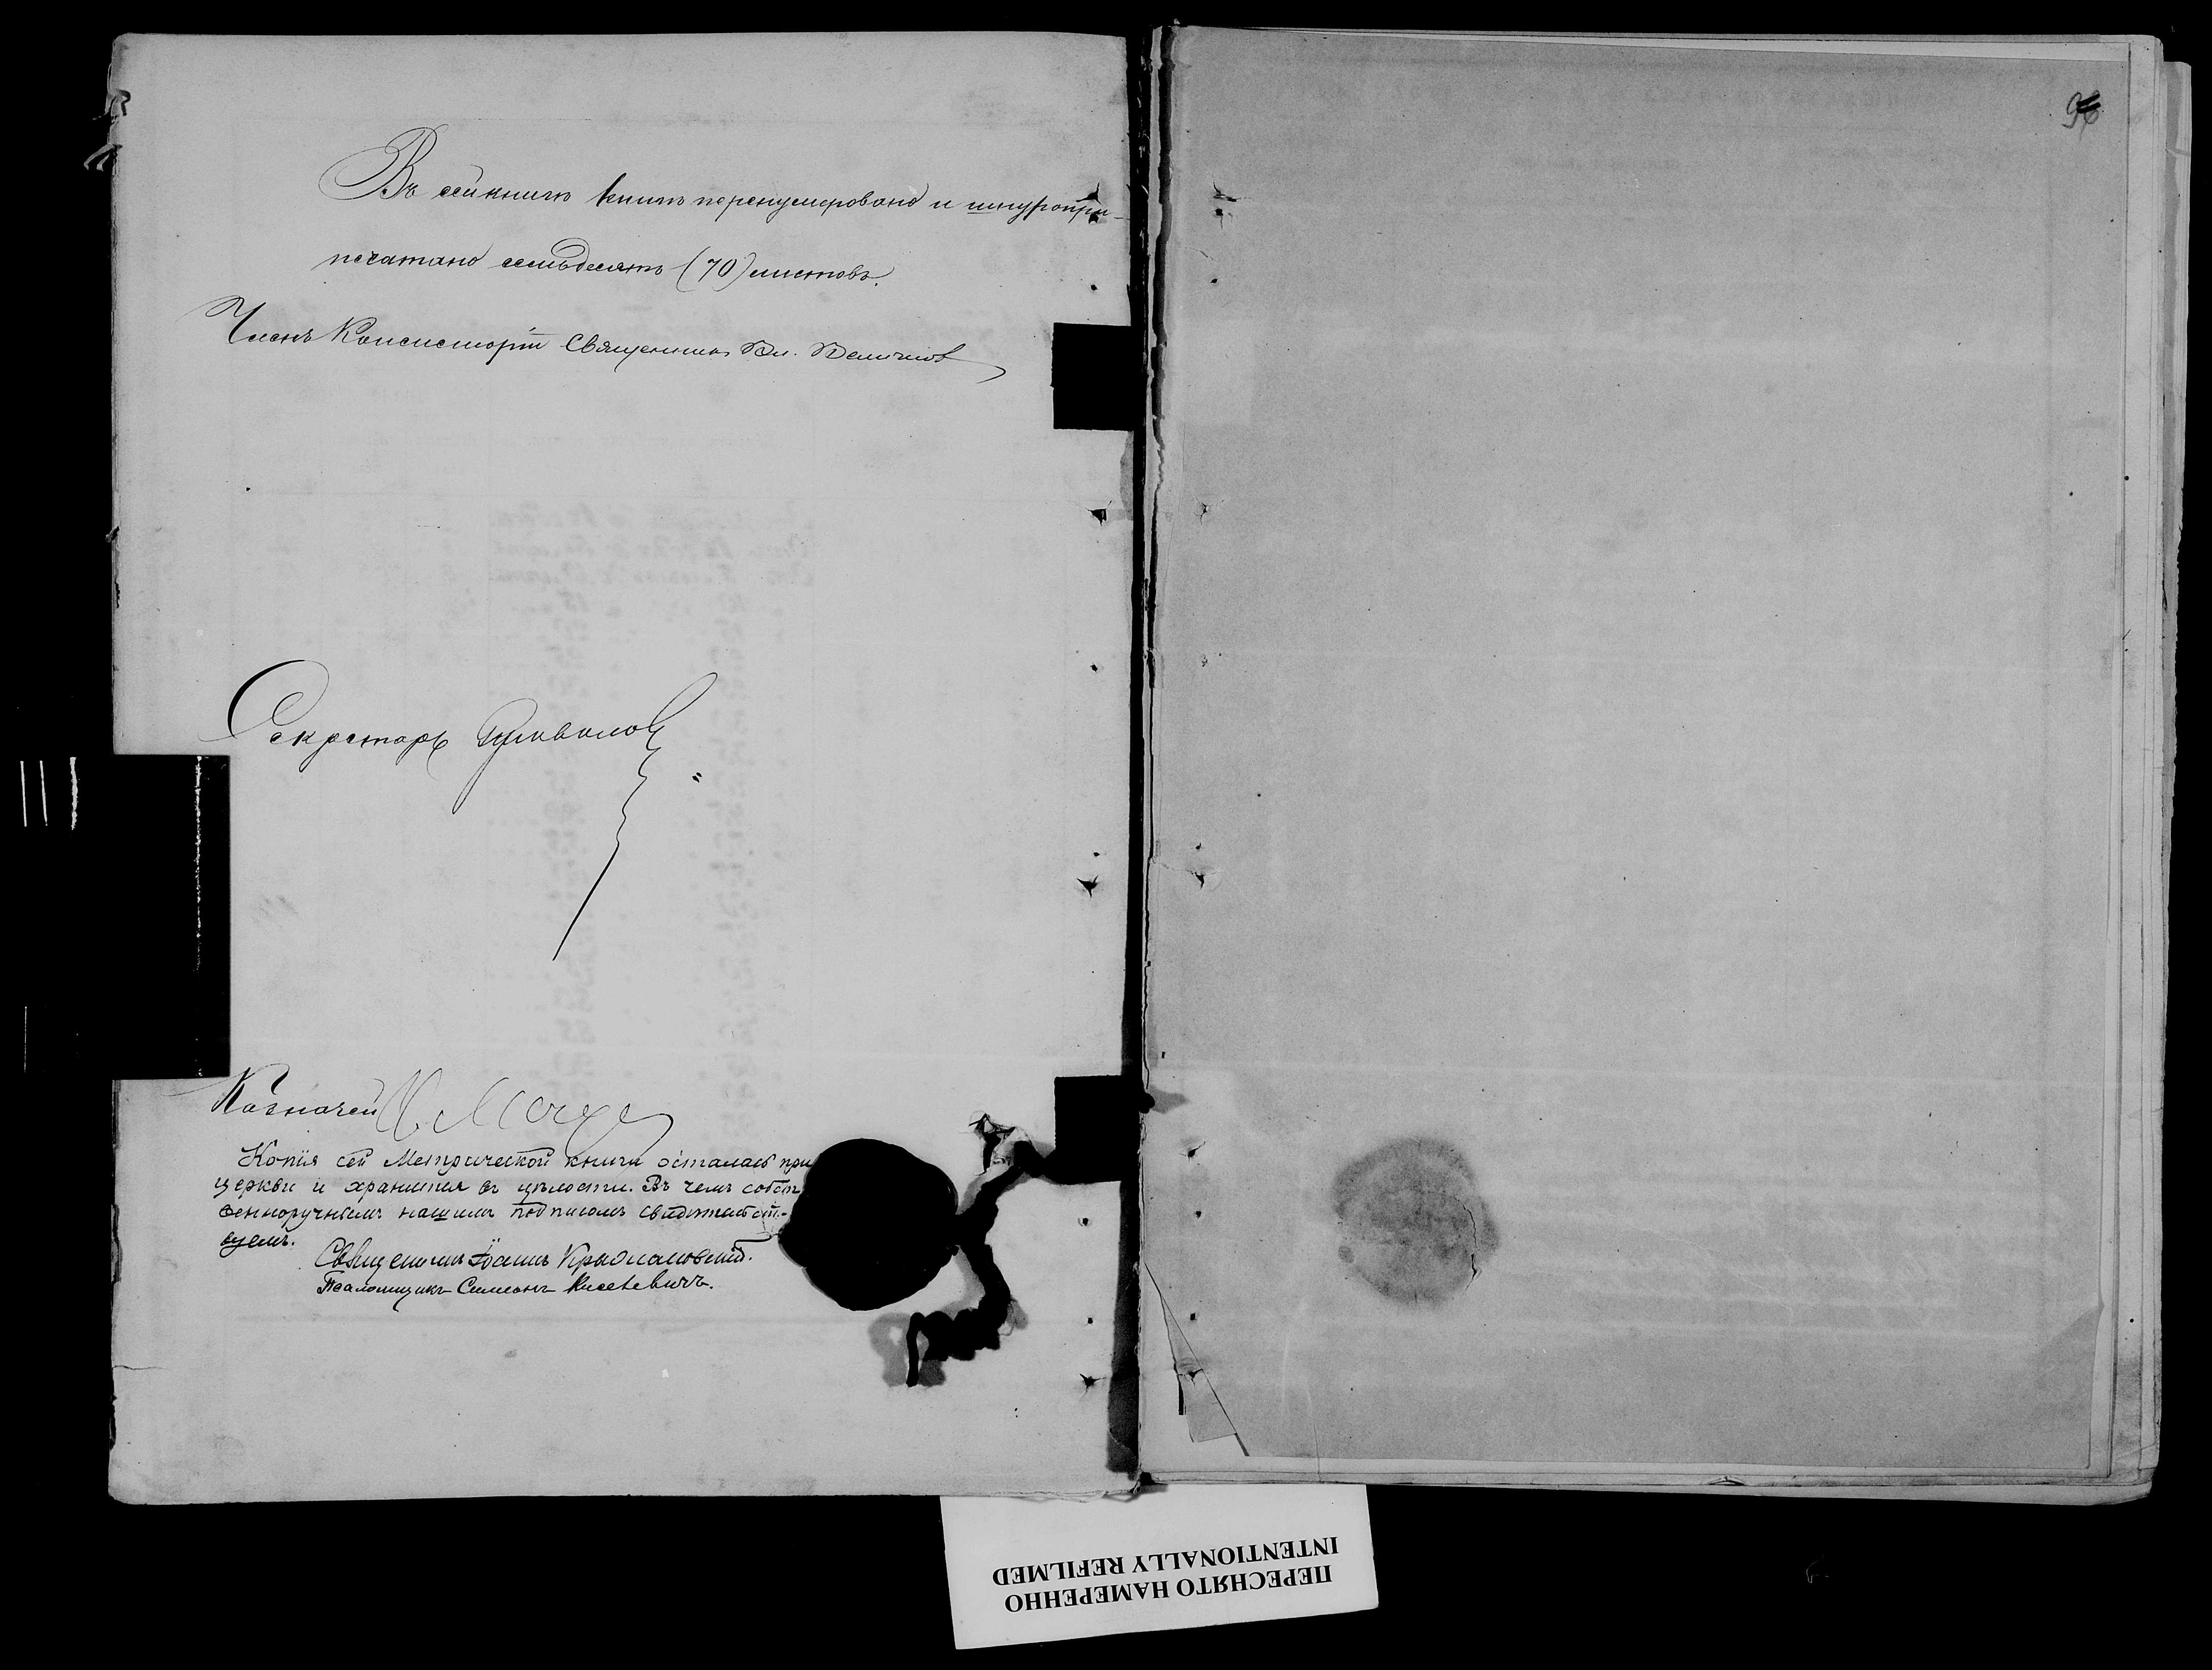 Въ сей книги книгъ перенумеровано и шнуропри-
печатано семьдесятъ (70) листовъ.
Членъ Консисторіи Священникъ Вл.
Секретарь
Казначей
Копія сей Метрической книги осталась при
церкви и хранится въ цѣлости. Въ чемъ собст
венноручнымъ нашимъ подписомъ свидѣтельст-
вуемъ.
Священникъ Іоаннъ
Псаломщикъ Симеонъ Киселевичъ.
96
ПЕРЕСНЯТО НАМЕРЕННО
INTENTIONALLY REFILMED